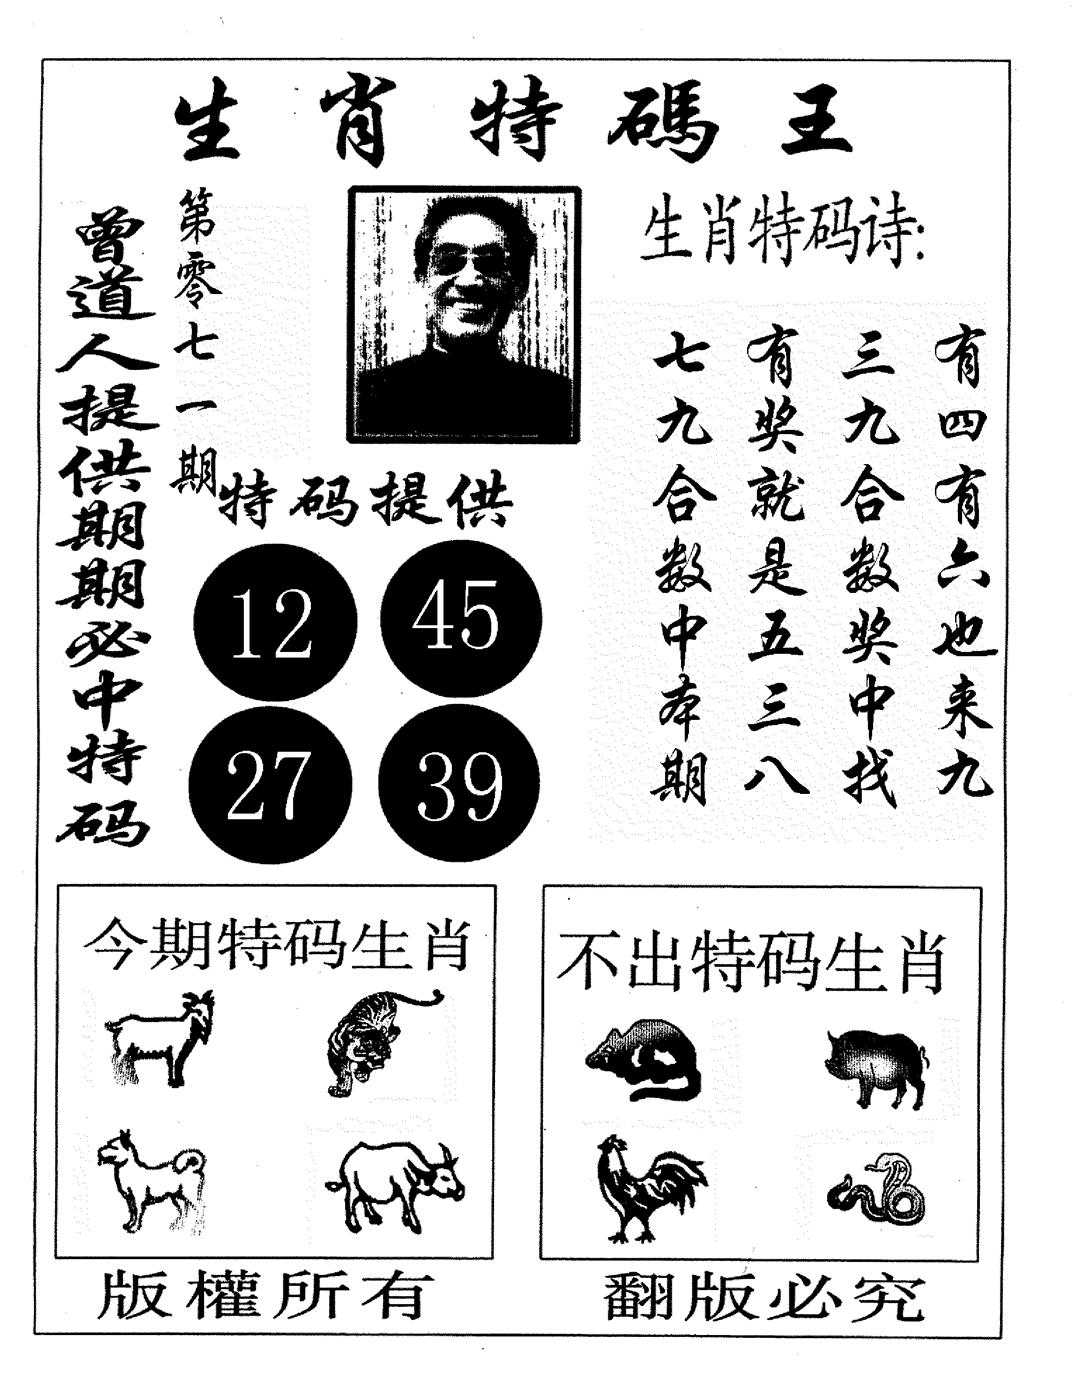 生肖特碼王
曾道人提供期期必中特码
第零七一期
生肖特码诗:
有四有六也来九
三九合数奖中找
有奖就是五三八
七九合数中本期
特码提供
12 45
27 39
今期特码生肖
不出特码生肖
版權所有
翻版必究